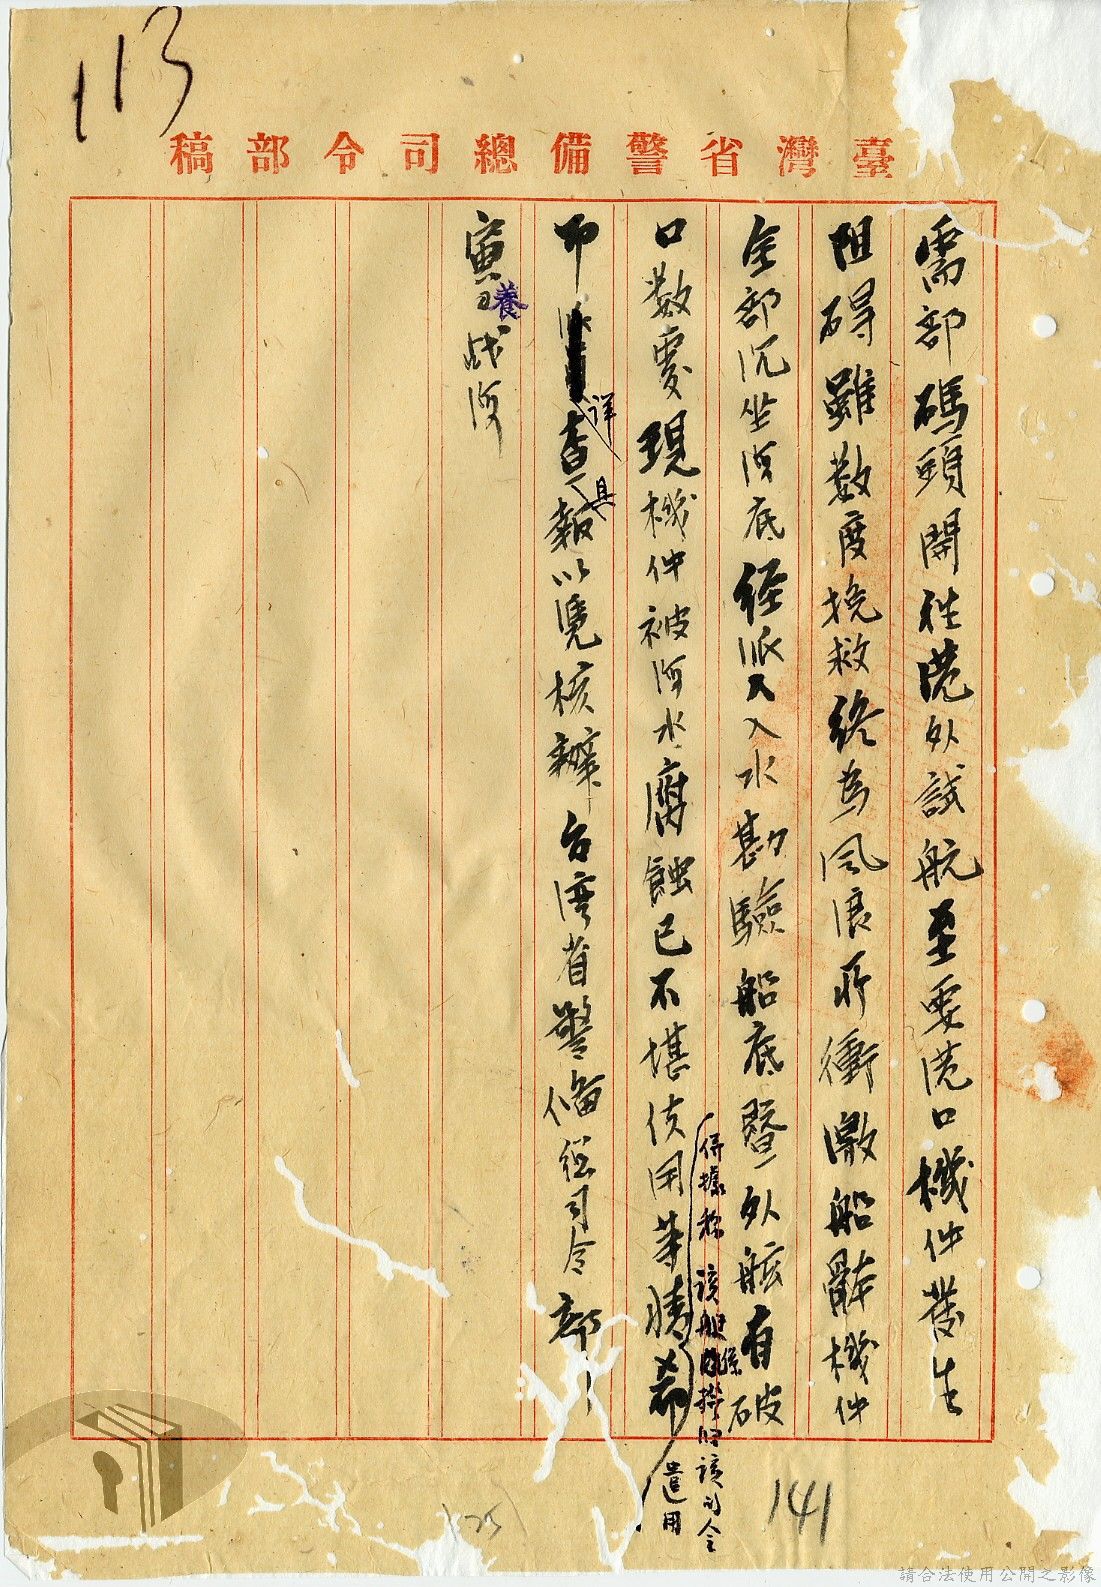 113
臺灣省警備總司令部稿
需部碼頭開往港外試航至要港口機件發生
阻碍雖数度挽救終為風浪所衝激船體機件
全部沉坐海底経派人入水勘驗船底暨外舷有破
口数處現機件被海水腐蝕已不堪使用等情
併據称該艇係撥歸該司令
遣用
希即
詳查具報以凴核辦台湾省警備総司令部
寅養
战海
141
125
請合法使用公開之影像